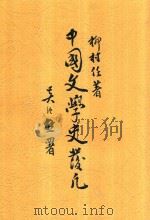 柳村任著
中國文學史發凡
吳署